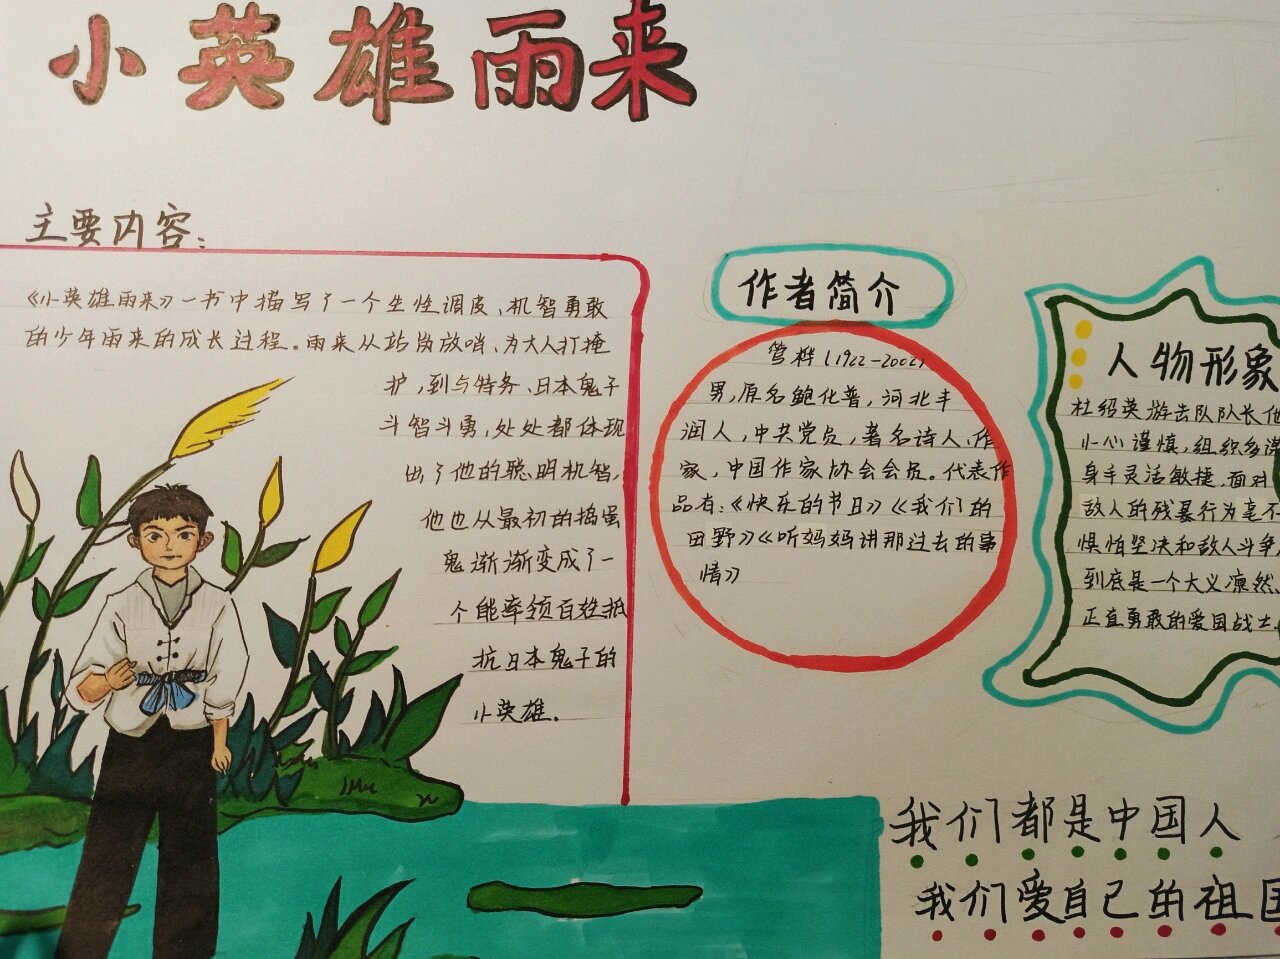 小英雄雨来
主要内容:
《小英雄雨来》一书中描写了一个生性调皮、机智勇敢
的少年雨来的成长过程。雨来从站岗放哨、为大人打掩
护,到与特务、日本鬼子
斗智斗勇,处处都体现
出了他的聪明机智,
他也从最初的捣蛋
鬼渐渐变成了一
个能率领百姓抵
抗日本鬼子的
小英雄.
作者简介
管桦(1922-2002)
男,原名鲍化普,河北丰
润人,中共党员,著名诗人、作
家,中国作家协会会员。代表作
品有:《快乐的节日》《我们的
田野》《听妈妈讲那过去的事
情》
人物形象
杜绍英游击队队长他
小心谨慎,组织多谋
身手灵活敏捷,面对
敌人的残暴行为毫不
惧怕坚决和敌人斗争
到底是一个大义凛然、
正直勇敢的爱国战士.
我们都是中国人
我们爱自己的祖国